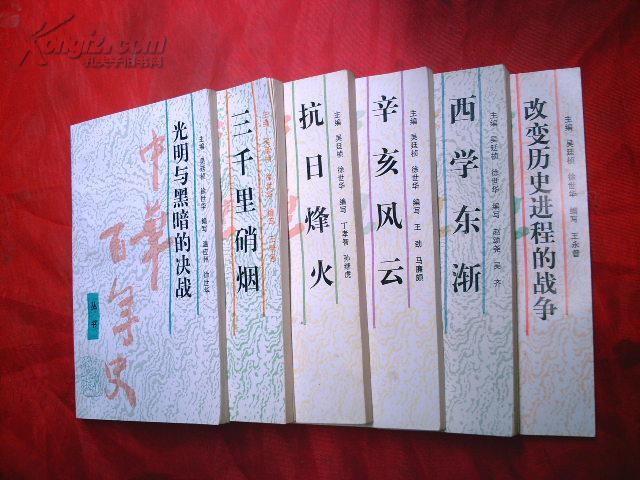 Kongfz.com
孔夫子旧书网
中华
百年史
丛书
光明与黑暗的决战
主编 吴廷桢 徐世华 编写 温应州 徐世华
三千里硝烟
主编 吴廷桢 徐世华 编写
抗日烽火
主编 吴廷桢 徐世华 编写 丁孝智 孙继虎
辛亥风云
主编 吴廷桢 徐世华 编写 王劲 马廉颇
西学东渐
主编 吴廷桢 徐世华 编写 赵颂尧 吴齐
改变历史进程的战争
主编 吴廷桢 徐世华 编写 王永曾